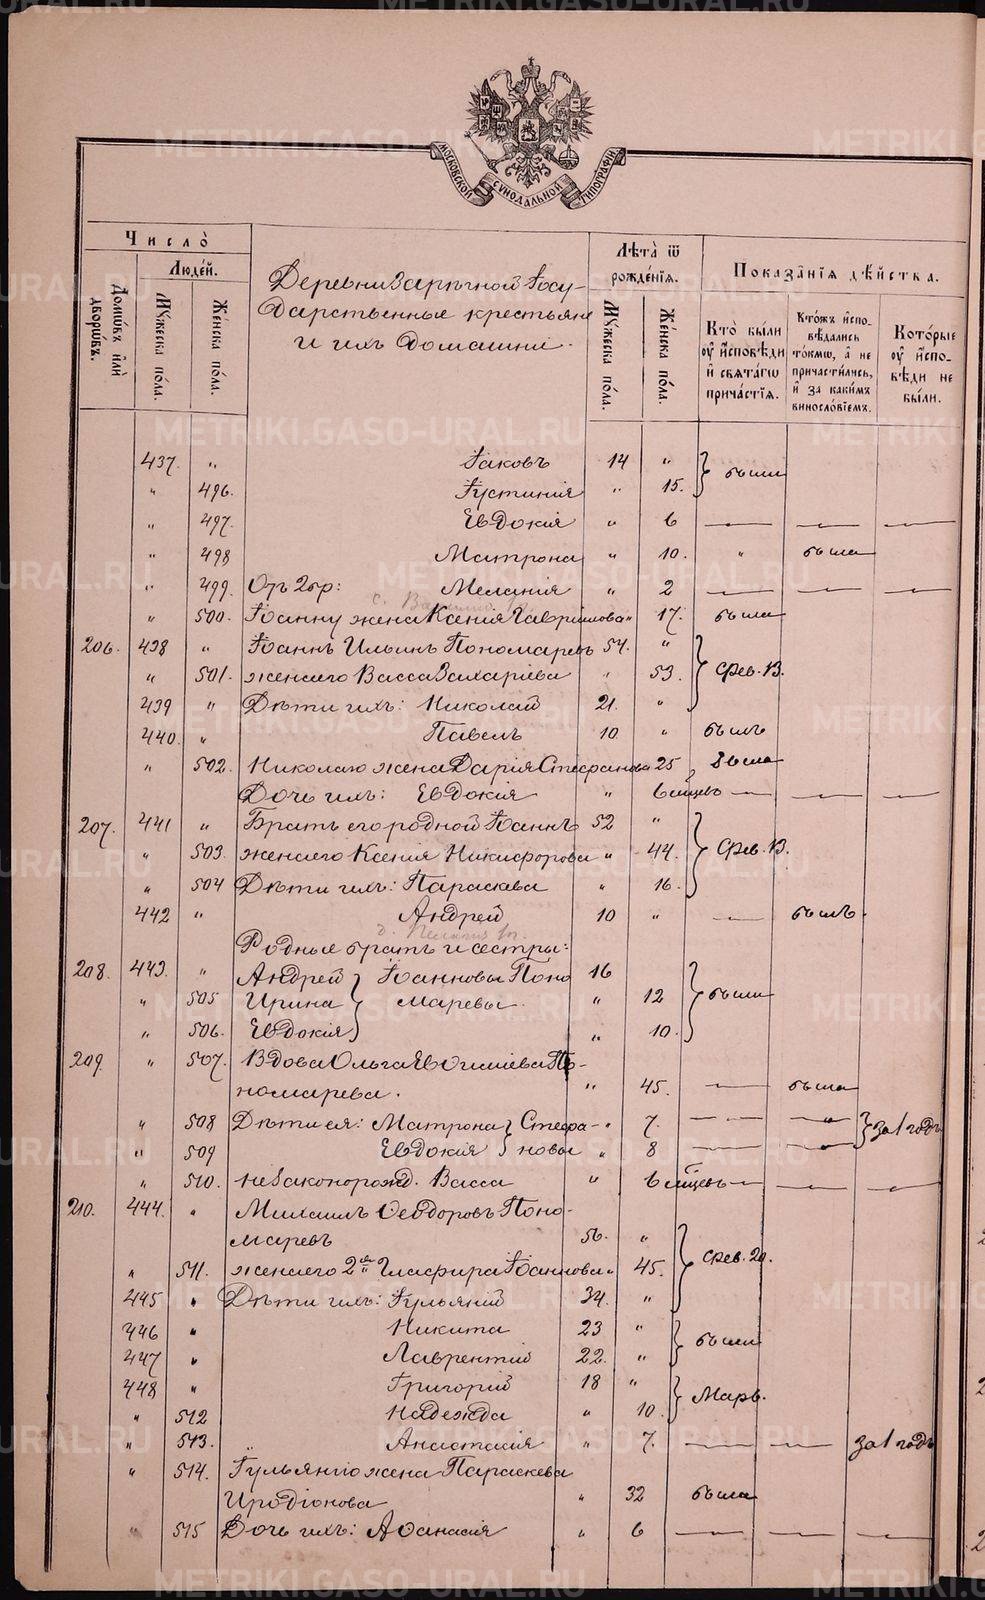 МОСКОВСКОЙ СѴНОДАЛЬНОЙ ТИПОГРАФІИ
Число̀
Людей.
Домѡвъ илѝ дворѡвъ.
Мꙋжеска по́ла.
Же́нска по́ла.
Деревни Заречной Госу-
дарственные крестьяне
и ихъ домашніе.
Лѣта̀ ѿ рожде́нїѧ.
Мꙋжеска по́ла.
Же́нска по́ла.
Показа̑нїѧ дѣ́йства.
Кто̀ бы́ли ᲂу̓ и҆сповѣ́ди и҆ свѧта́гѡ прича́стїѧ.
Кто́жъ и҆спо-вѣ́дались то́кмѡ, а҆ не причасти́лись, и҆ за каки́мъ винослові́емъ.
Кото́рые ᲂу̓ и҆спо-вѣ́ди не бы́ли.
437. " Іаковъ 14 " } были
" 496. Іустинія " 15.
" 497. Евдокія " 6 — — —
" 498 Матрона " 10. " была
" 499. Отъ 2 бр: Меланія " 2 — — —
" 500. Іоанну жена Ксенія Гавриилова " 17. была
206. 438 " Іоаннъ Ильинъ Пономаревъ 54. " } Фев. 13.
" 501. жена его Васса Захаріева " 53.
439 " Дѣти ихъ: Николай 21. "
440. " Павелъ 10 " былъ
" 502. Николаю жена Дарія Стефанова 25 была
Дочь ихъ: Евдокія " 6 мѣсцевъ — — —
207. 441 " Братъ его родной Іоаннъ 52 " } Фев. 13.
" 503. жена его Ксенія Никифорова " 44.
" 504 Дѣти ихъ: Параскева " 16.
442 " Андрей 10 " — былъ.
Родные братъ и сестры:
208. 443. " Андрей } Іоанновы Поно 16 } были
" 505 Ирина } маревы. " 12
" 506. Евдокія } " 10.
209. " 507. Вдова Ольга Евфиміева По-
номарева. " 45. — была
" 508 Дѣти ея: Матрона } Стефа- " 7. — — } за 1 годъ
" 509 Евдокія } новы " 8 — —
" 510. незаконорожд. Васса " 6 мѣсцевъ — — —
210. 444. " Михаилъ Ѳеодоровъ Поно-
маревъ 56. " } Фев. 20.
" 511. жена его 2ая Глафира Іоаннова " 45.
445 " Дѣти ихъ: Іульяній 34. "
446 " Никита 23 " } были
447 " Лаврентій 22. "
448 " Григорій 18 " } Мар 6.
" 512 Надежда " 10.
" 513. " Анастасія " 7. — — за 1 годъ
" 514. Іульянію жена Параскева
Иродіонова " 32 была
" 515 Дочь ихъ: Аѳанасія " 6 — — —
METRIKI.GASO-URAL.RU